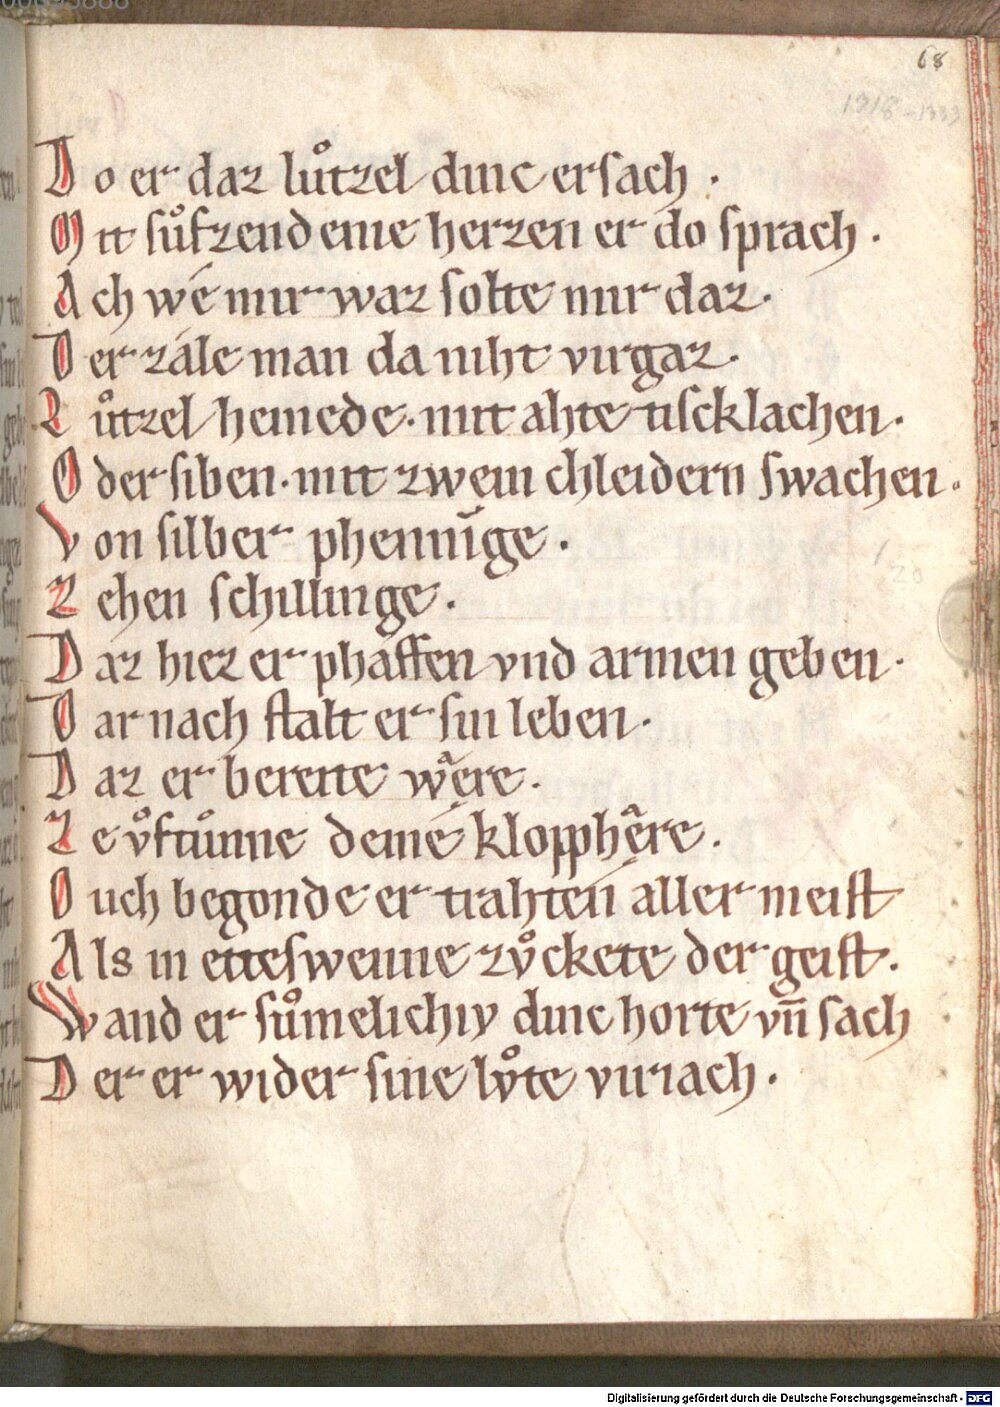 68
1318-1333
Do er daz luͦtzel dinc ersach ·
Mit suͦfzendeme herzen er do sprach ·
Ach wé mir waz solte mir daz ·
Der zále man da niht virgaz ·
Luͦtzel hemede · mit ahte tiscklachen ·
Oder siben · mit zwein chleidern swachen ·
Von silber phenninge ·
Zehen schillinge ·
Daz hiez er phaffen vnd armen geben ·
Dar nach stalt er sin leben ·
Daz er bereite wͣere ·
Ze vͦftuͦnne deme klopphͣere ·
Ouch begonde er trahten aller meist
Als in etteswenne zvͦckete der geist ·
Wand er suͦmelichiv dinc horte vn̄ sach
Der er wider sine lvͦte virjach ·
Digitalisierung gefördert durch die Deutsche Forschungsgemeinschaft - DFG